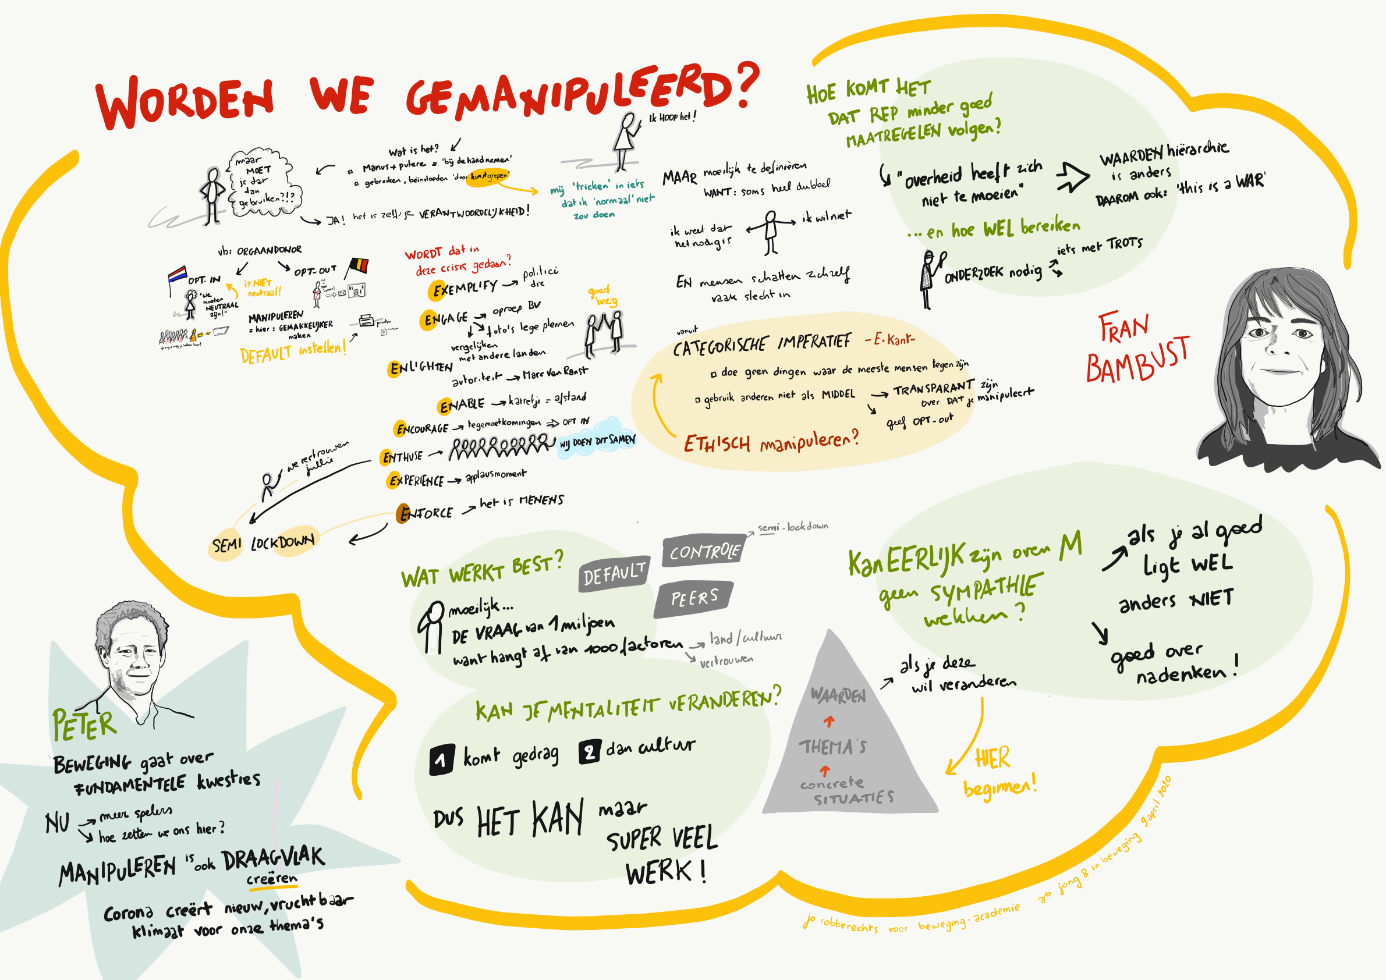 WORDEN WE GEMANIPULEERD?
Wat is het?
Manus + pulere = 'bij de hand nemen'
gebruiken, beïnvloeden 'door kunstgrepen'
maar
MOET
je dat
dan
gebruiken?!?
JA! het is zelfs je VERANTWOORDELIJKHEID!
Ik HOOP het!
mij 'tricken' in iets
dat ik 'normaal' niet
zou doen
MAAR moeilijk te definiëren
WANT: soms heel dubbel
ik weet dat
het nodig is
ik wil niet
EN mensen schatten zichzelf
vaak slecht in
vb: ORGAANDONOR
OPT-IN
OPT-OUT
is NIET
neutraal!
"We
moeten
NEUTRAAL
zijn!"
MANIPULEREN
= hier: GEMAKKELIJKER
maken
DEFAULT instellen!
WORDT dat in
deze crisis gedaan?
EXEMPLIFY → politici
die
ENGAGE → oproep BV
foto's lege pleinen
vergelijken
met andere landen
ENLIGHTEN
autoriteit → Marc Van Ranst
goed
bezig
ENABLE → karretje = afstand
ENCOURAGE → tegemoetkomingen ⇒ OPT IN
ENTHUSE →
WIJ DOEN DIT SAMEN
EXPERIENCE → applausmoment
ENFORCE → het is MENENS
we vertrouwen
jullie
SEMI LOCKDOWN
vanuit
CATEGORISCHE IMPERATIEF - E. Kant -
doe geen dingen waar de meeste mensen tegen zijn
gebruik anderen niet als MIDDEL → TRANSPARANT zijn
over DAT je manipuleert
geef OPT-out
ETHISCH manipuleren?
HOE KOMT HET
DAT REP minder goed
MAATREGELEN volgen?
"overheid heeft zich
niet te moeien"
WAARDEN hiërarchie
is anders
DAAROM ook: 'this is a WAR'
...en hoe WEL bereiken
ONDERZOEK nodig
iets met TROTS
FRAN
BAMBUST
WAT WERKT BEST?
DEFAULT
CONTROLE
semi-lockdown
PEERS
moeilijk...
DE VRAAG van 1 miljoen
want hangt af van 1000 factoren
land/cultuur
vertrouwen
KAN JE MENTALITEIT VERANDEREN?
1 komt gedrag 2 dan cultuur
DUS HET KAN maar
SUPER VEEL
WERK!
Kan EERLIJK zijn over M
geen SYMPATHIE
wekken?
als je al goed
ligt WEL
anders NIET
goed over
nadenken!
WAARDEN
THEMA'S
concrete
SITUATIES
als je deze
wil veranderen
HIER
beginnen!
PETER
BEWEGING gaat over
FUNDAMENTELE kwesties
NU → meer spelers
hoe zetten we ons hier?
MANIPULEREN is ook DRAAGVLAK
creëren
Corona creërt nieuw, vruchtbaar
klimaat voor onze thema's
jo robberechts voor beweging.academie
20 jong & in beweging 9 april 2020